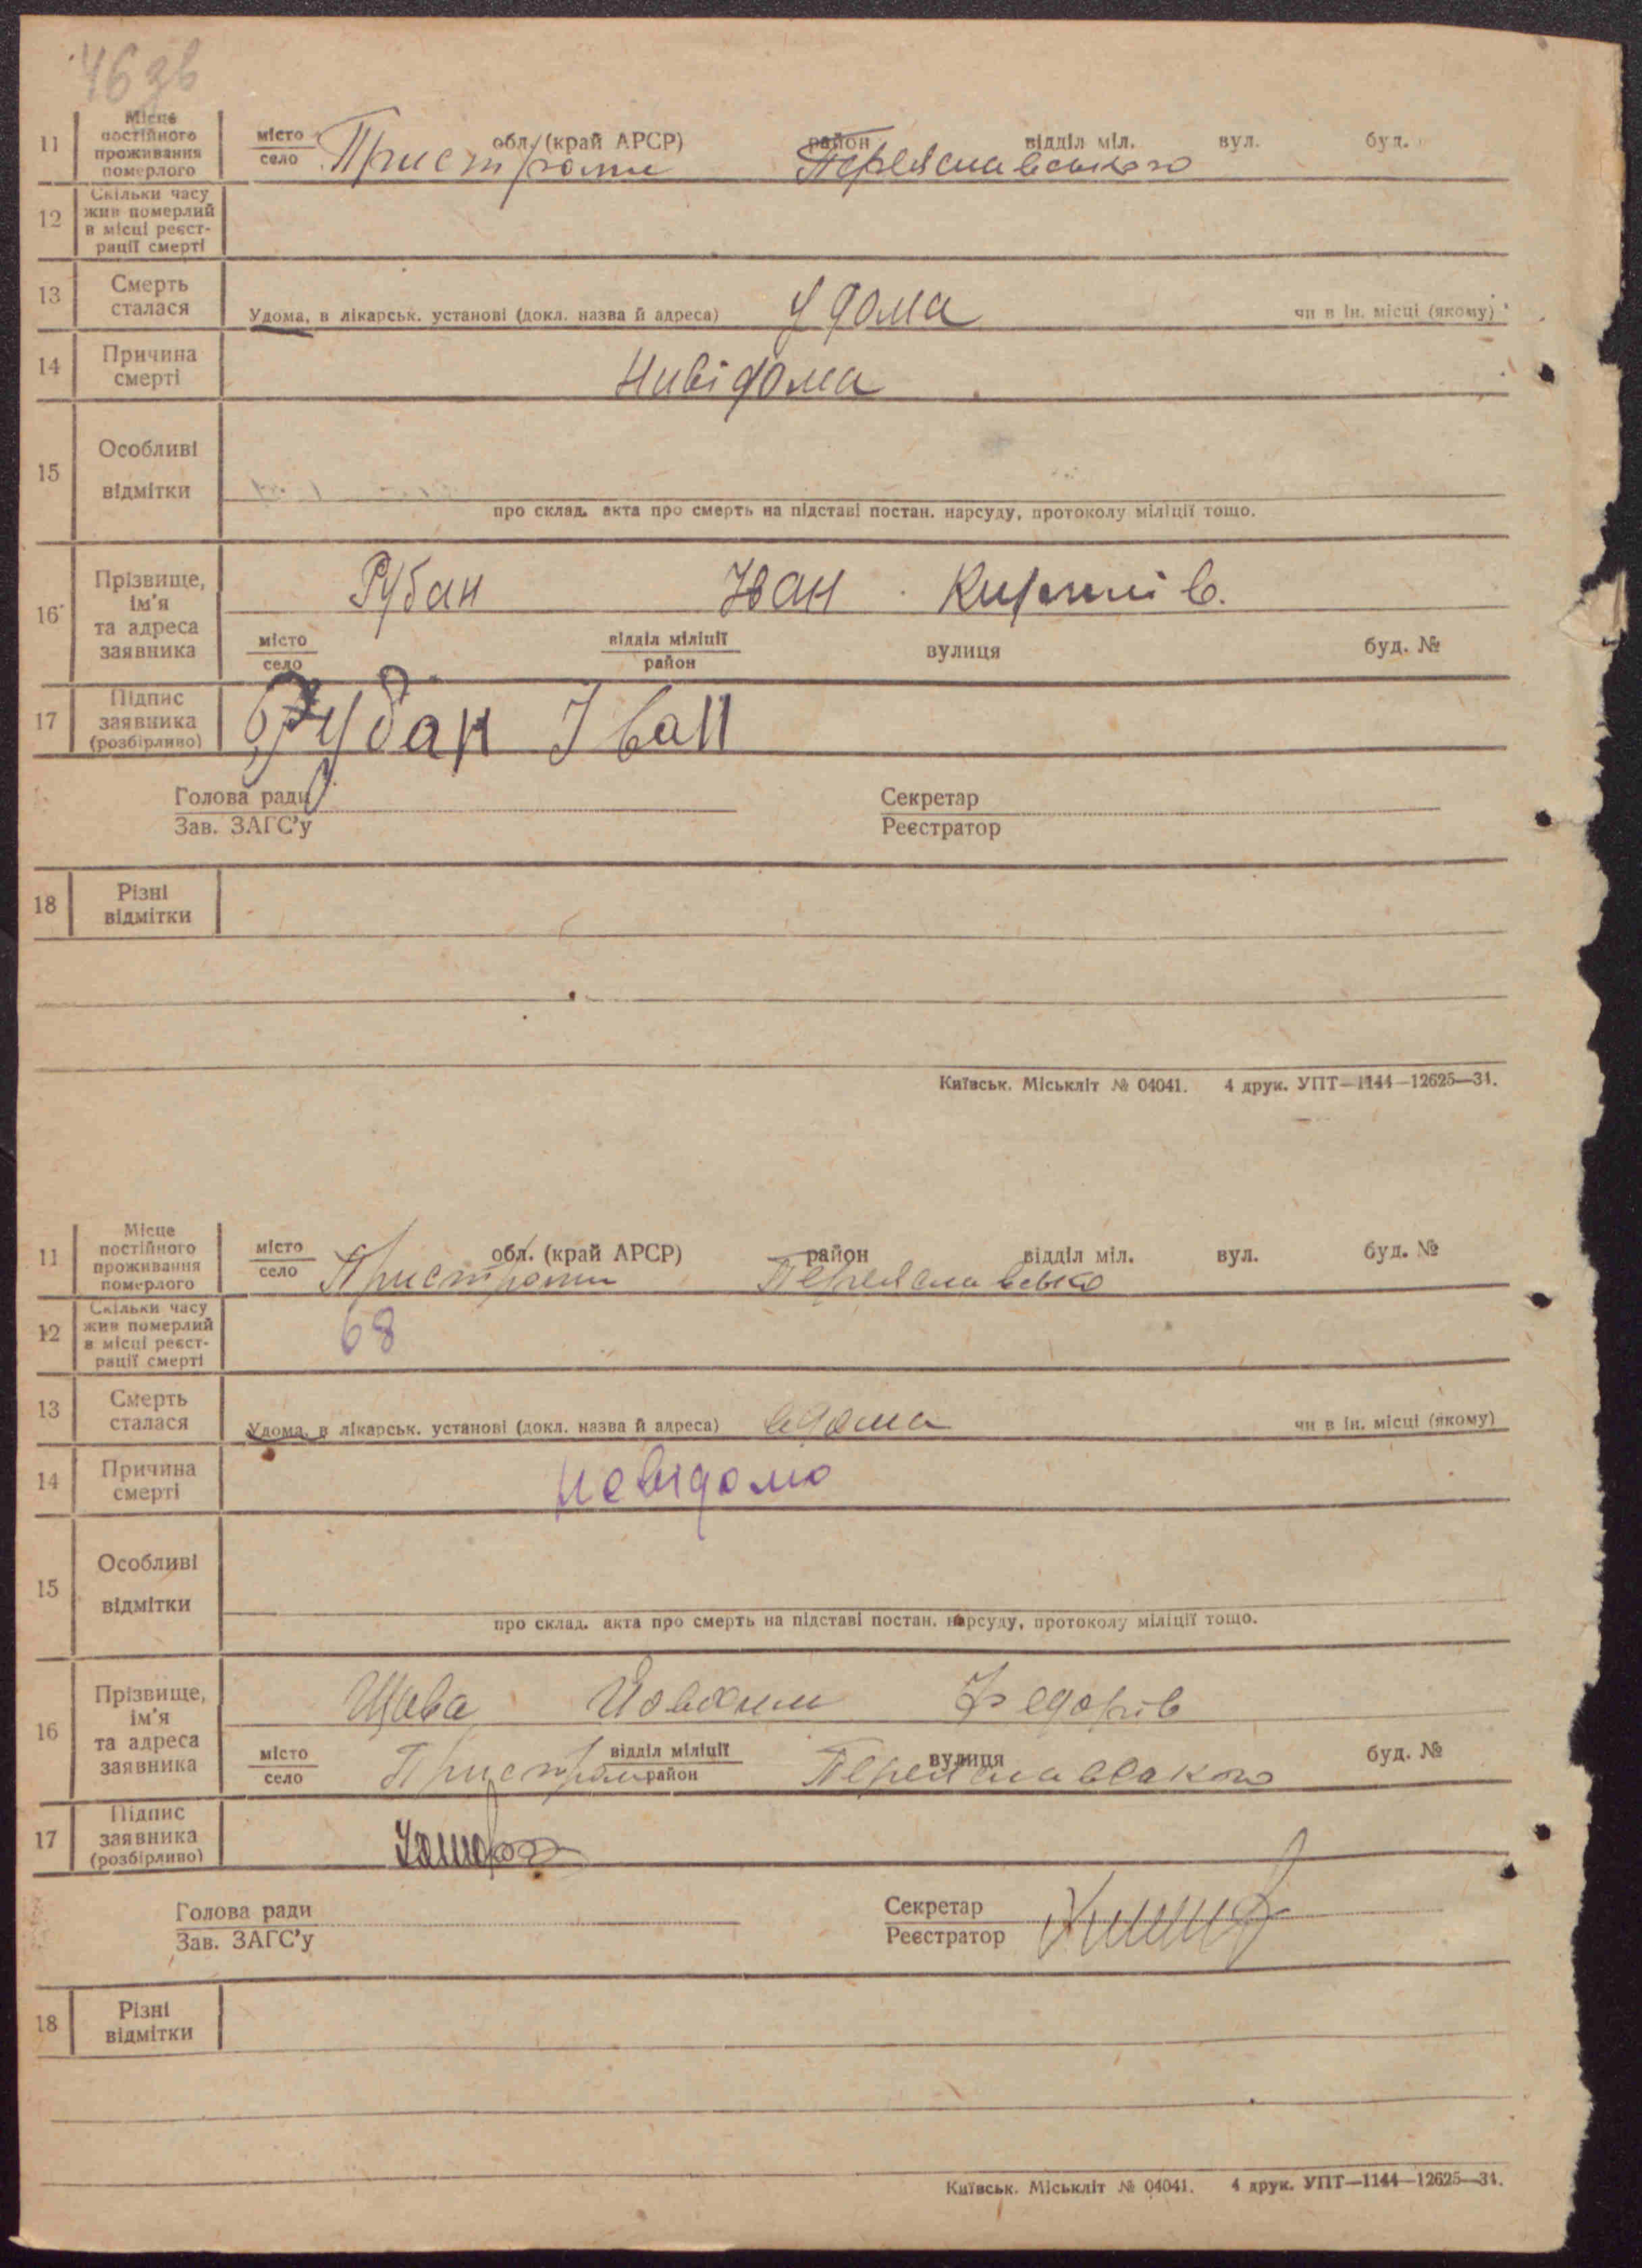 46 зв
11 Місце постійного проживання померлого місто село Пристроми обл. (край АРСР) район Переяславського відділ міл. вул. буд.
12 Скільки часу жив померлий в місці реєстрації смерті
13 Смерть сталася Удома, в лікарськ. установі (докл. назва й адреса) У дома чи в ін. місці (якому)
14 Причина смерті Нивідома
15 Особливі відмітки
про склад. акта про смерть на підставі постан. нарсуду, протоколу міліції тощо.
16 Прізвище, ім'я та адреса заявника Рубан Іван Кирилів.
місто село відділ міліції район вулиця буд. №
17 Підпис заявника (розбірливо) Рубан Іван
Голова ради Секретар
Зав. ЗАГС'у Реєстратор
18 Різні відмітки
Київськ. Міськліт № 04041. 4 друк. УПТ—1144—12625—34.
11 Місце постійного проживання померлого місто село Пристроми обл. (край АРСР) район Переяславсько відділ міл. вул. буд. №
12 Скільки часу жив померлий в місці реєстрації смерті 68
13 Смерть сталася Удома, в лікарськ. установі (докл. назва й адреса) вдома чи в ін. місці (якому)
14 Причина смерті невідомо
15 Особливі відмітки
про склад. акта про смерть на підставі постан. нарсуду, протоколу міліції тощо.
16 Прізвище, ім'я та адреса заявника Федорів
місто село Пристроми відділ міліції район вулиця Переяславського буд. №
17 Підпис заявника (розбірливо)
Голова ради Секретар
Зав. ЗАГС'у Реєстратор
18 Різні відмітки
Київськ. Міськліт № 04041. 4 друк. УПТ—1144—12625—34.